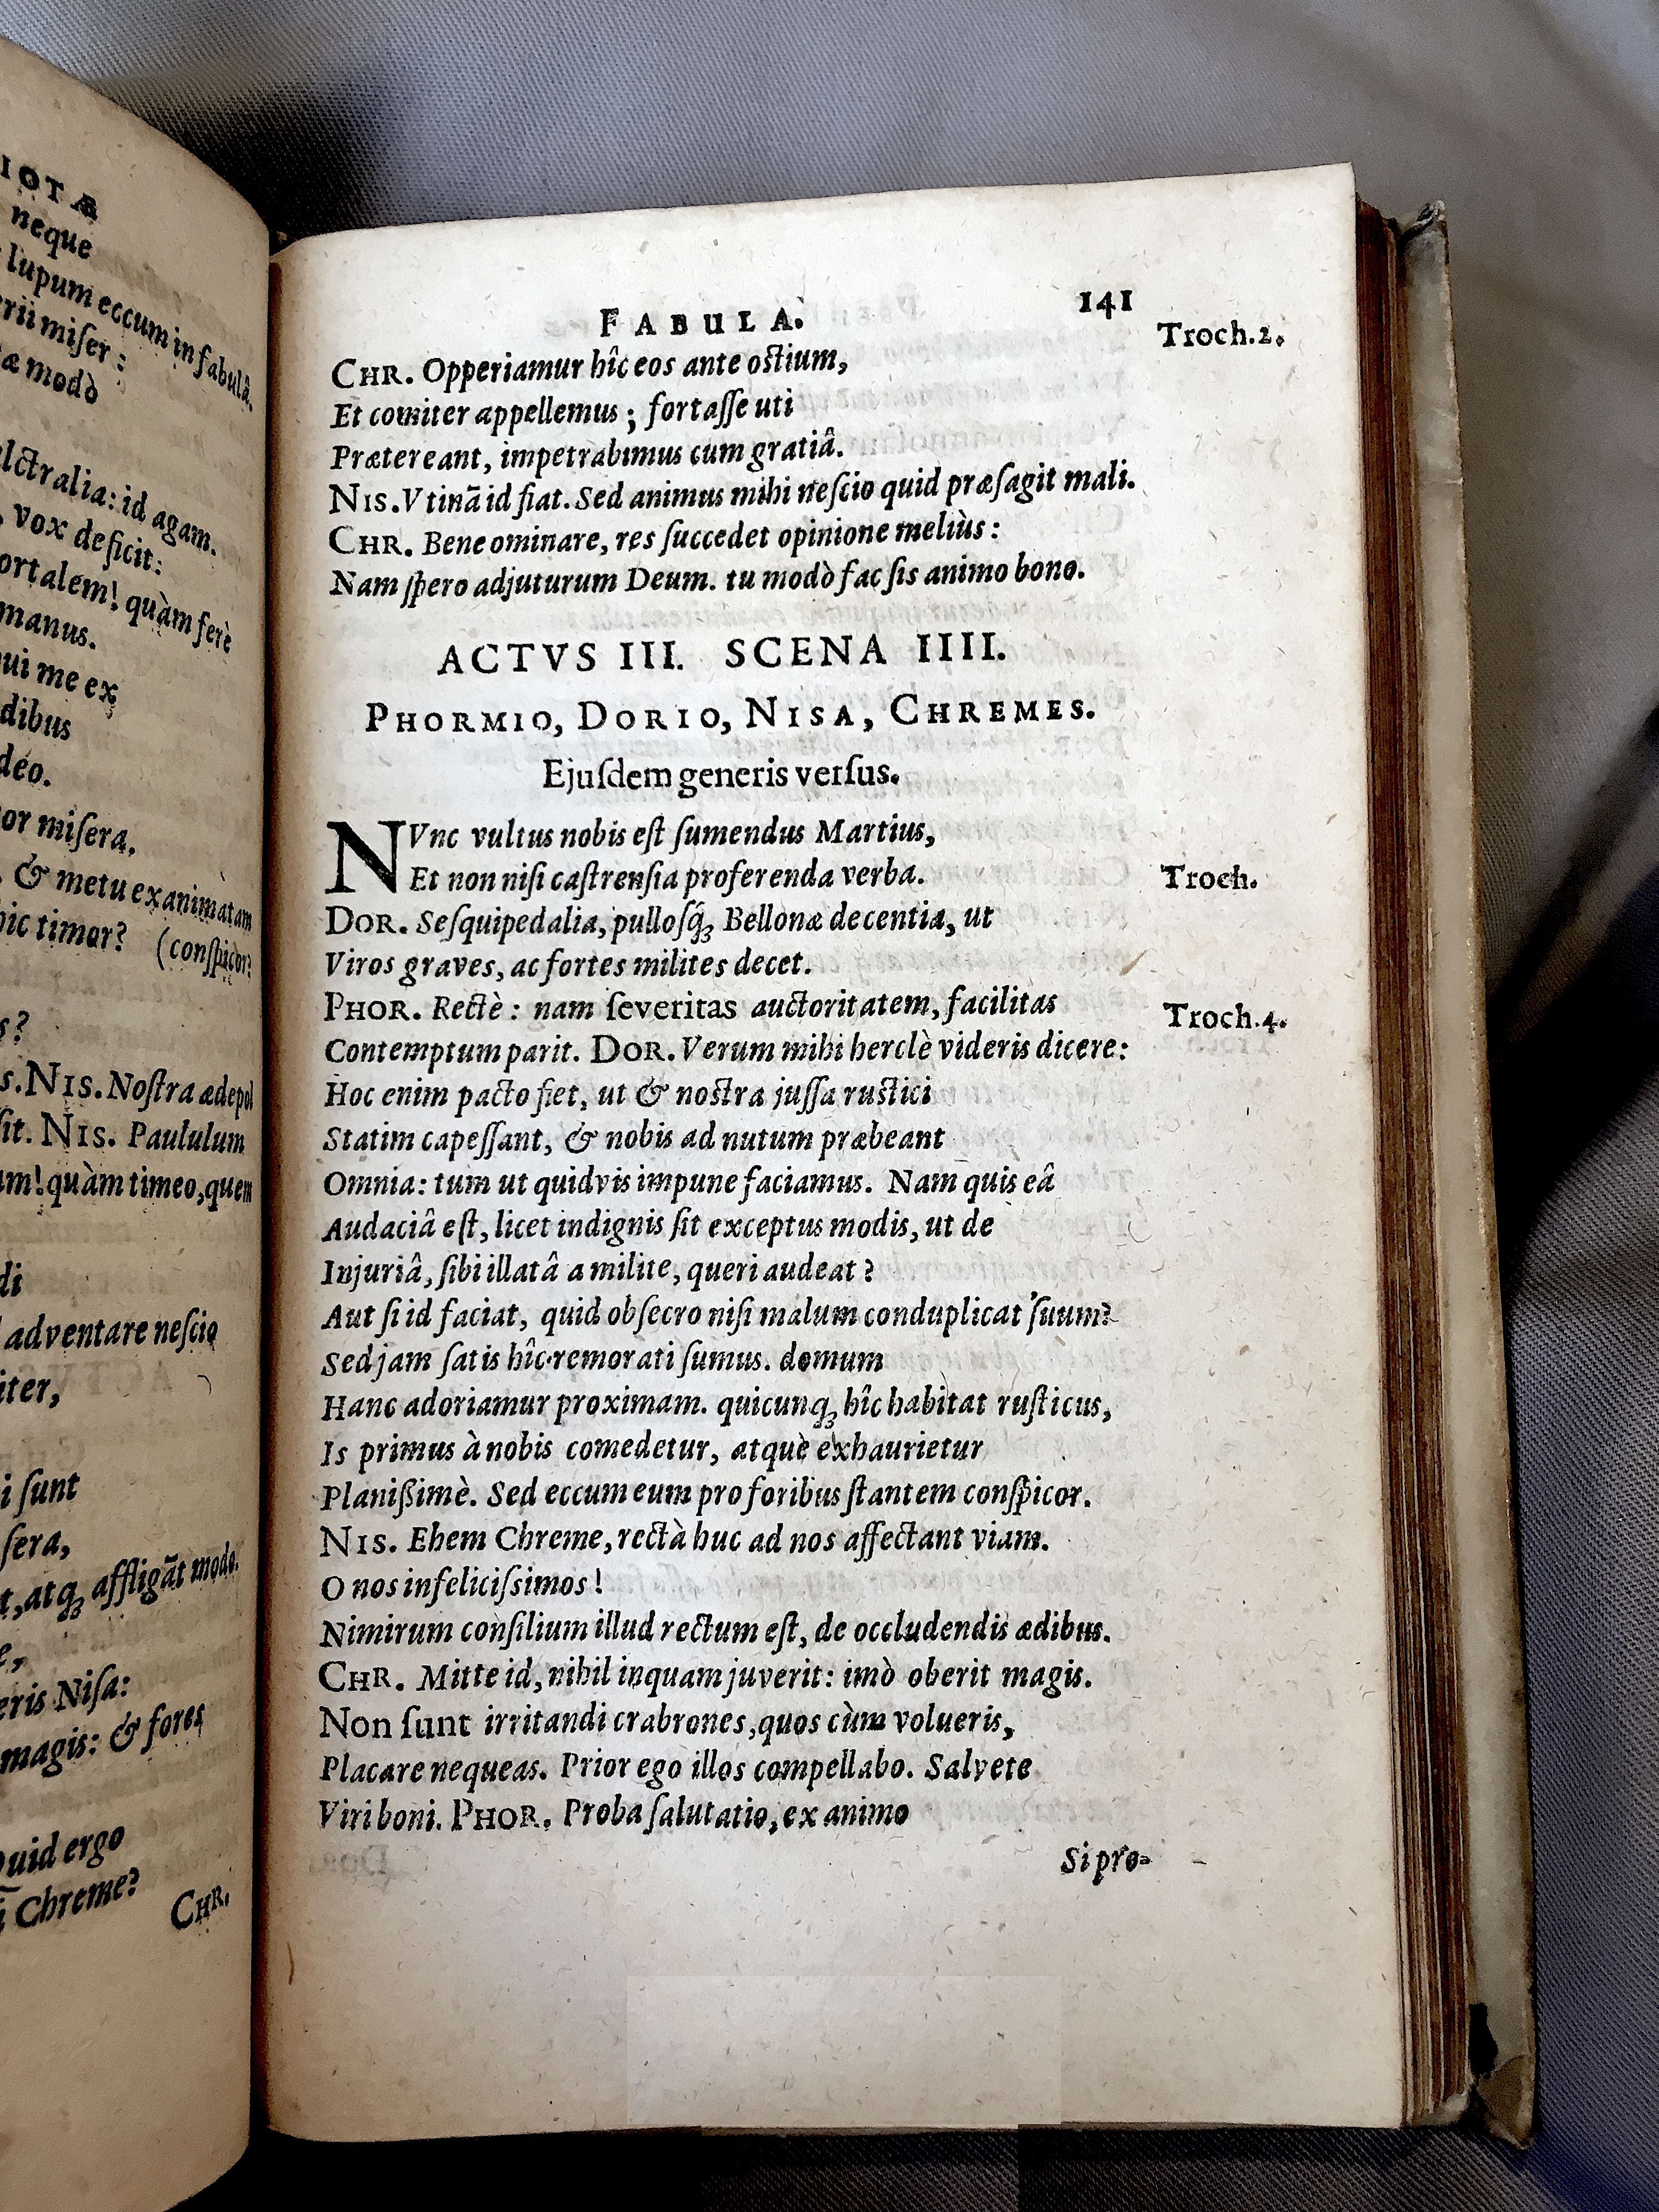 IOTÆ
neque
lupum eccum in fabulâ.
rii miser:
æ modò
vox deficit:
ortalem! quàm ferè
manus.
ui me ex
dibus
deo.
or misera.
& metu exanimàtam
hic timor? (conspicor?
s?
s. NIS. Nostra ædepol
sit. NIS. Paululum
um! quàm timeo, quem
di
adventare nescio
iter,
i sunt
sera,
t, atq; affligāt modo.
eris Nisa:
magis: & fores
Quid ergo
Chreme?
CHR.
FABULA. 141
CHR. Opperiamur hîc eos ante ostium, Troch. 2.
Et comiter appellemus; fortasse uti
Prætereant, impetrabimus cum gratiâ.
NIS. Vtinā id fiat. Sed animus mihi nescio quid præsagit mali.
CHR. Bene ominare, res succedet opinione meliùs:
Nam spero adjuturum Deum. tu modò fac sis animo bono.
ACTVS III. SCENA IIII.
PHORMIO, DORIO, NISA, CHREMES.
Ejusdem generis versus.
NVnc vultus nobis est sumendus Martius,
Et non nisi castrensia proferenda verba. Troch.
DOR. Sesquipedalia, pullosq́; Bellonæ decentia, ut
Viros graves, ac fortes milites decet.
PHOR. Rectè: nam severitas auctoritatem, facilitas Troch. 4.
Contemptum parit. DOR. Verum mihi herclè videris dicere:
Hoc enim pacto fiet, ut & nostra jussa rustici
Statim capessant, & nobis ad nutum præbeant
Omnia: tum ut quidvis impune faciamus. Nam quis eâ
Audaciâ est, licet indignis sit exceptus modis, ut de
Injuriâ, sibi illatâ a milite, queri audeat?
Aut si id faciat, quid obsecro nisi malum conduplicat suum?
Sed jam satis hîc remorati sumus. domum
Hanc adoriamur proximam. quicunq; hîc habitat rusticus,
Is primus à nobis comedetur, atquè exhaurietur
Planißimè. Sed eccum eum pro foribus stantem conspicor.
NIS. Ehem Chreme, rectà huc ad nos affectant viam.
O nos infelicissimos!
Nimirum consilium illud rectum est, de occludendis ædibus.
CHR. Mitte id, nihil inquam juverit: imò oberit magis.
Non sunt irritandi crabrones, quos cùm volueris,
Placare nequeas. Prior ego illos compellabo. Salvete
Viri boni. PHOR. Proba salutatio, ex animo
Si pro-